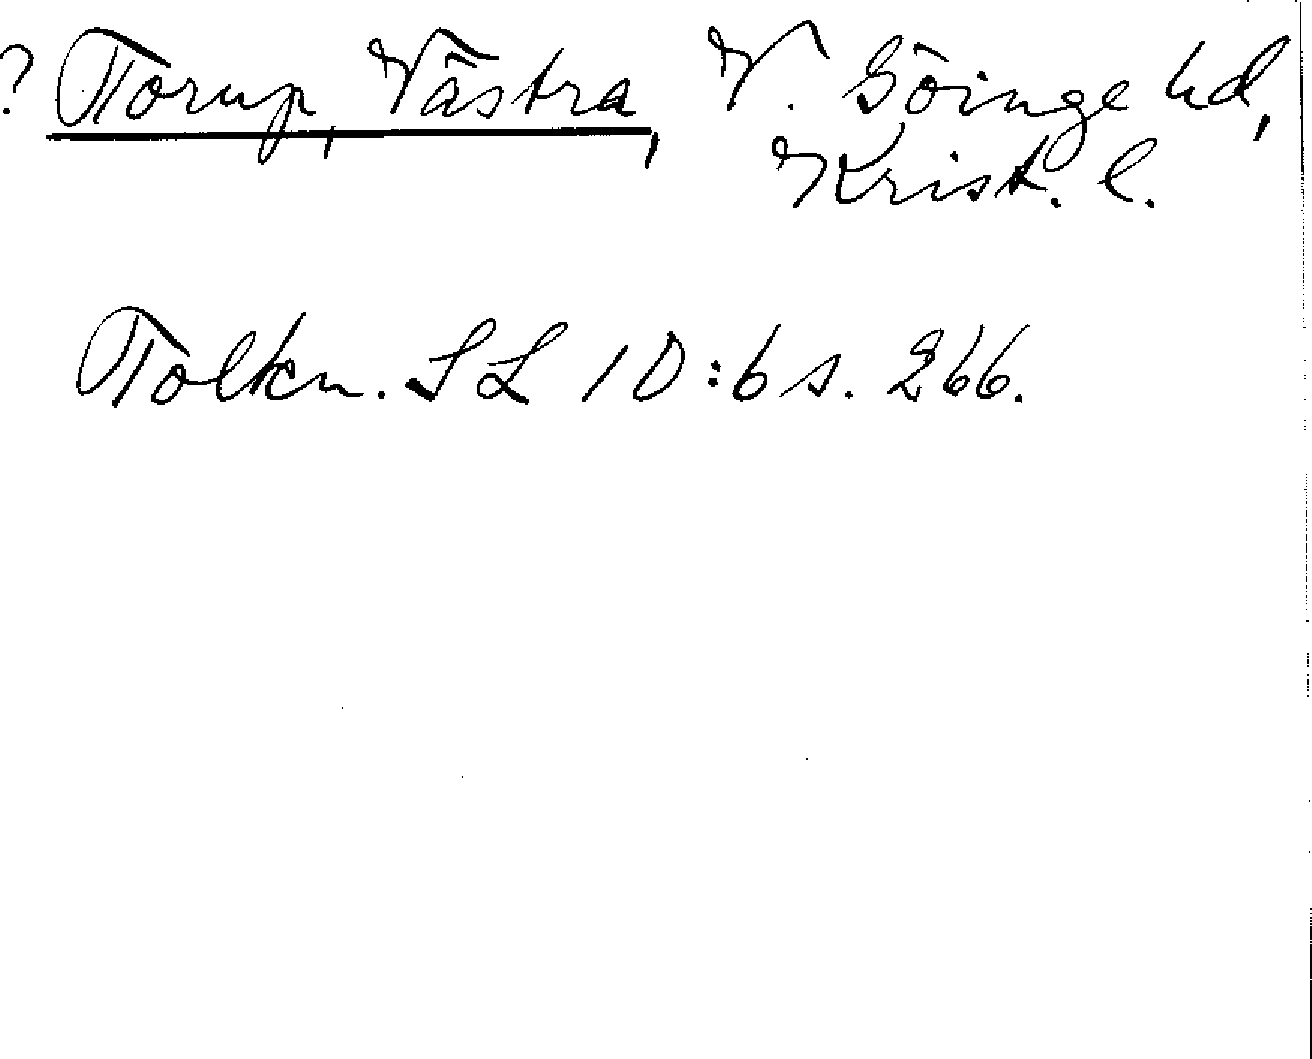 ? Torup, Västra, V. Göinge hd,
Krist. l.
Tolkn. SL 10:6 s. 266.